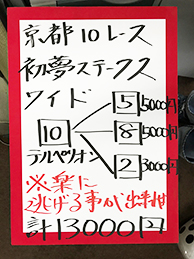 京都10レース
初夢ステークス
ワイド
5 5000円
10 8 5000円
テルペリオン 2 3000円
※楽に
逃げる事が出来れば
計13000円